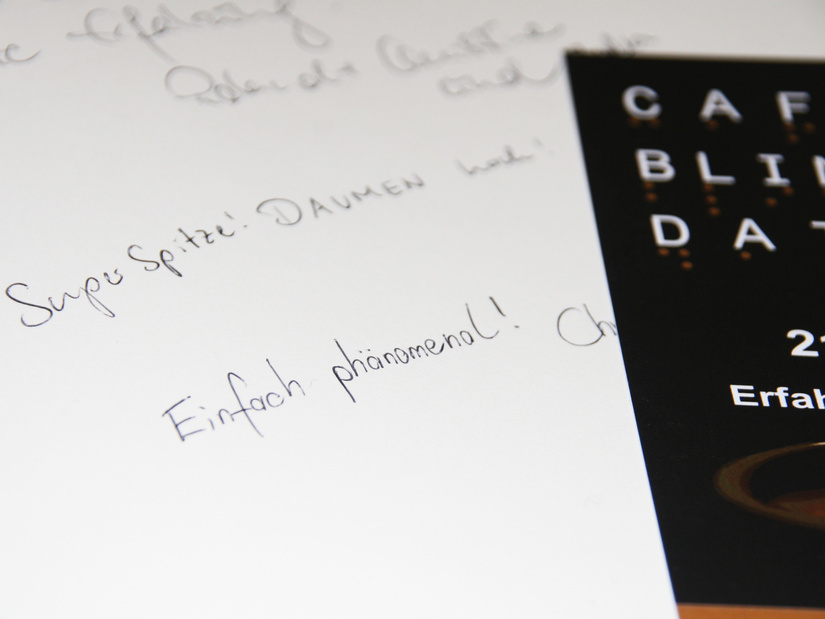 Erfahrung
und
Super Spitze! DAUMEN hoch!
Einfach phänomenal! Ch
CAF
BLIN
DAT
21
Erfah